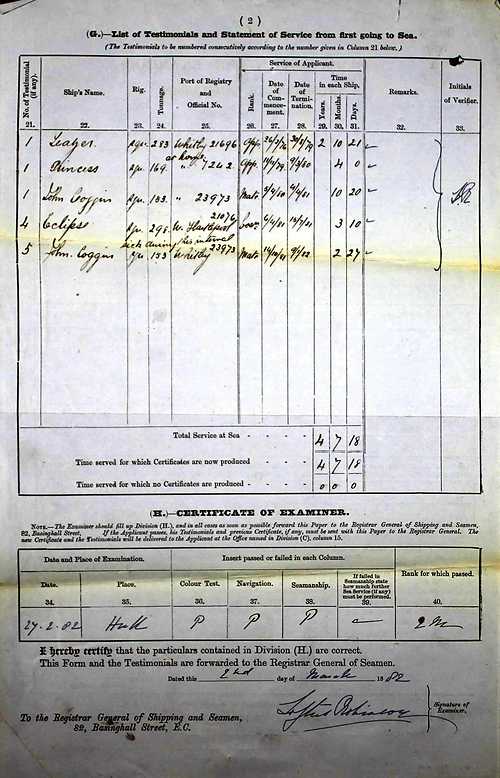 ( 2 )
(G.)—List of Testimonials and Statement of Service from first going to Sea.
(The Testimonials to be numbered consecutively according to the number given in Column 21 below.)
No. of Testimonial (if any). Ship's Name. Rig. Tonnage. Port of Registry and Official No. Service of Applicant. Remarks. Initials of Verifier.
Rank. Date of Commencement. Date of Termination. Time in each Ship.
Years. Months. Days.
21. 22. 23. 24. 25. 26. 27. 28. 29. 30. 31. 32. 33.
1 283 Whitby 21696 App. 2 10 21
at home
1 Princess 169 " 7242 App. 4 0
1 John Coggin 153 " 23973 Mate 10 20
4 Eclipse 298 W. Hartlepool 21076 3 10
sick during this interval
5 John Coggin 153 Whitby 23973 Mate 2 27
Total Service at Sea - - - - 4 7 18
Time served for which Certificates are now produced - - - - 4 7 18
Time served for which no Certificates are produced - - - - 0 0 0
(H.)—CERTIFICATE OF EXAMINER.
NOTE.—The Examiner should fill up Division (H.), and in all cases as soon as possible forward this Paper to the Registrar General of Shipping and Seamen,
82, Basinghall Street, If the Applicant passes, his Testimonials and previous Certificate, if any, must be sent with this Paper to the Registrar General. The
new Certificate and the Testimonials will be delivered to the Applicant at the Office named in Division (C), column 15.
Date and Place of Examination. Insert passed or failed in each Column. Rank for which passed.
Date. Place. Colour Test. Navigation. Seamanship. If failed in Seamanship state how much further Sea Service (if any) must be performed.
34. 35. 36. 37. 38. 39. 40.
27-2-82 Hull P P P — 2 M
I hereby certify that the particulars contained in Division (H.) are correct.
This Form and the Testimonials are forwarded to the Registrar General of Seamen.
Dated this 2nd day of March 1882
Robinson
Signature of Examiner.
To the Registrar General of Shipping and Seamen,
82, Basinghall Street, E.C.